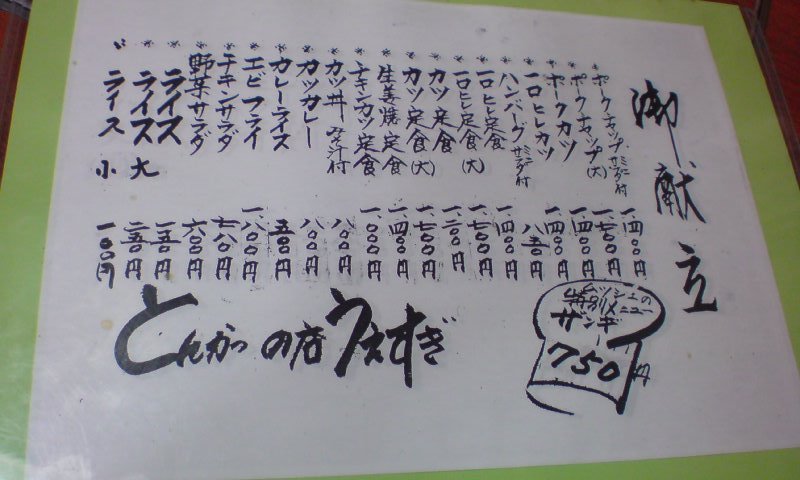 御献立
* ポークチャップ ミニサラダ付 一、四〇〇円
* ポークチャップ(大) 一、七〇〇円
* ポークカツ 一、四〇〇円
* 一口ヒレカツ 一、四〇〇円
* ハンバーグ ミニサラダ付 八五〇円
* 一口ヒレ定食 一、四〇〇円
* 一口ヒレ定食(大) 一、七〇〇円
* カツ定食 一、二〇〇円
* カツ定食(大) 一、七〇〇円
* 生姜焼定食 一、四〇〇円
* チキンカツ定食 一、〇〇〇円
* カツ丼 みそ汁付 八〇〇円
* カツカレー 八〇〇円
* カレーライス 五〇〇円
* エビフライ 一、八〇〇円
* チキンサラダ 七八〇円
* 野菜サラダ 六〇〇円
* ライス 一五〇円
* ライス 大 二五〇円
〃 ライス 小 一〇〇円
特別メニュー
ザンギ
750円
とんかつの店うえすぎ